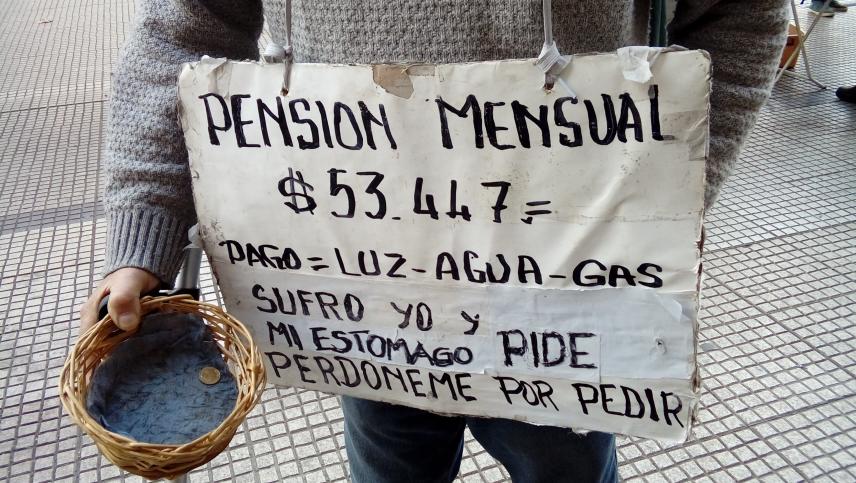 PENSION MENSUAL
$53.447=
PAGO=LUZ-AGUA-GAS
SUFRO YO Y
MI ESTOMAGO PIDE
PERDONEME POR PEDIR